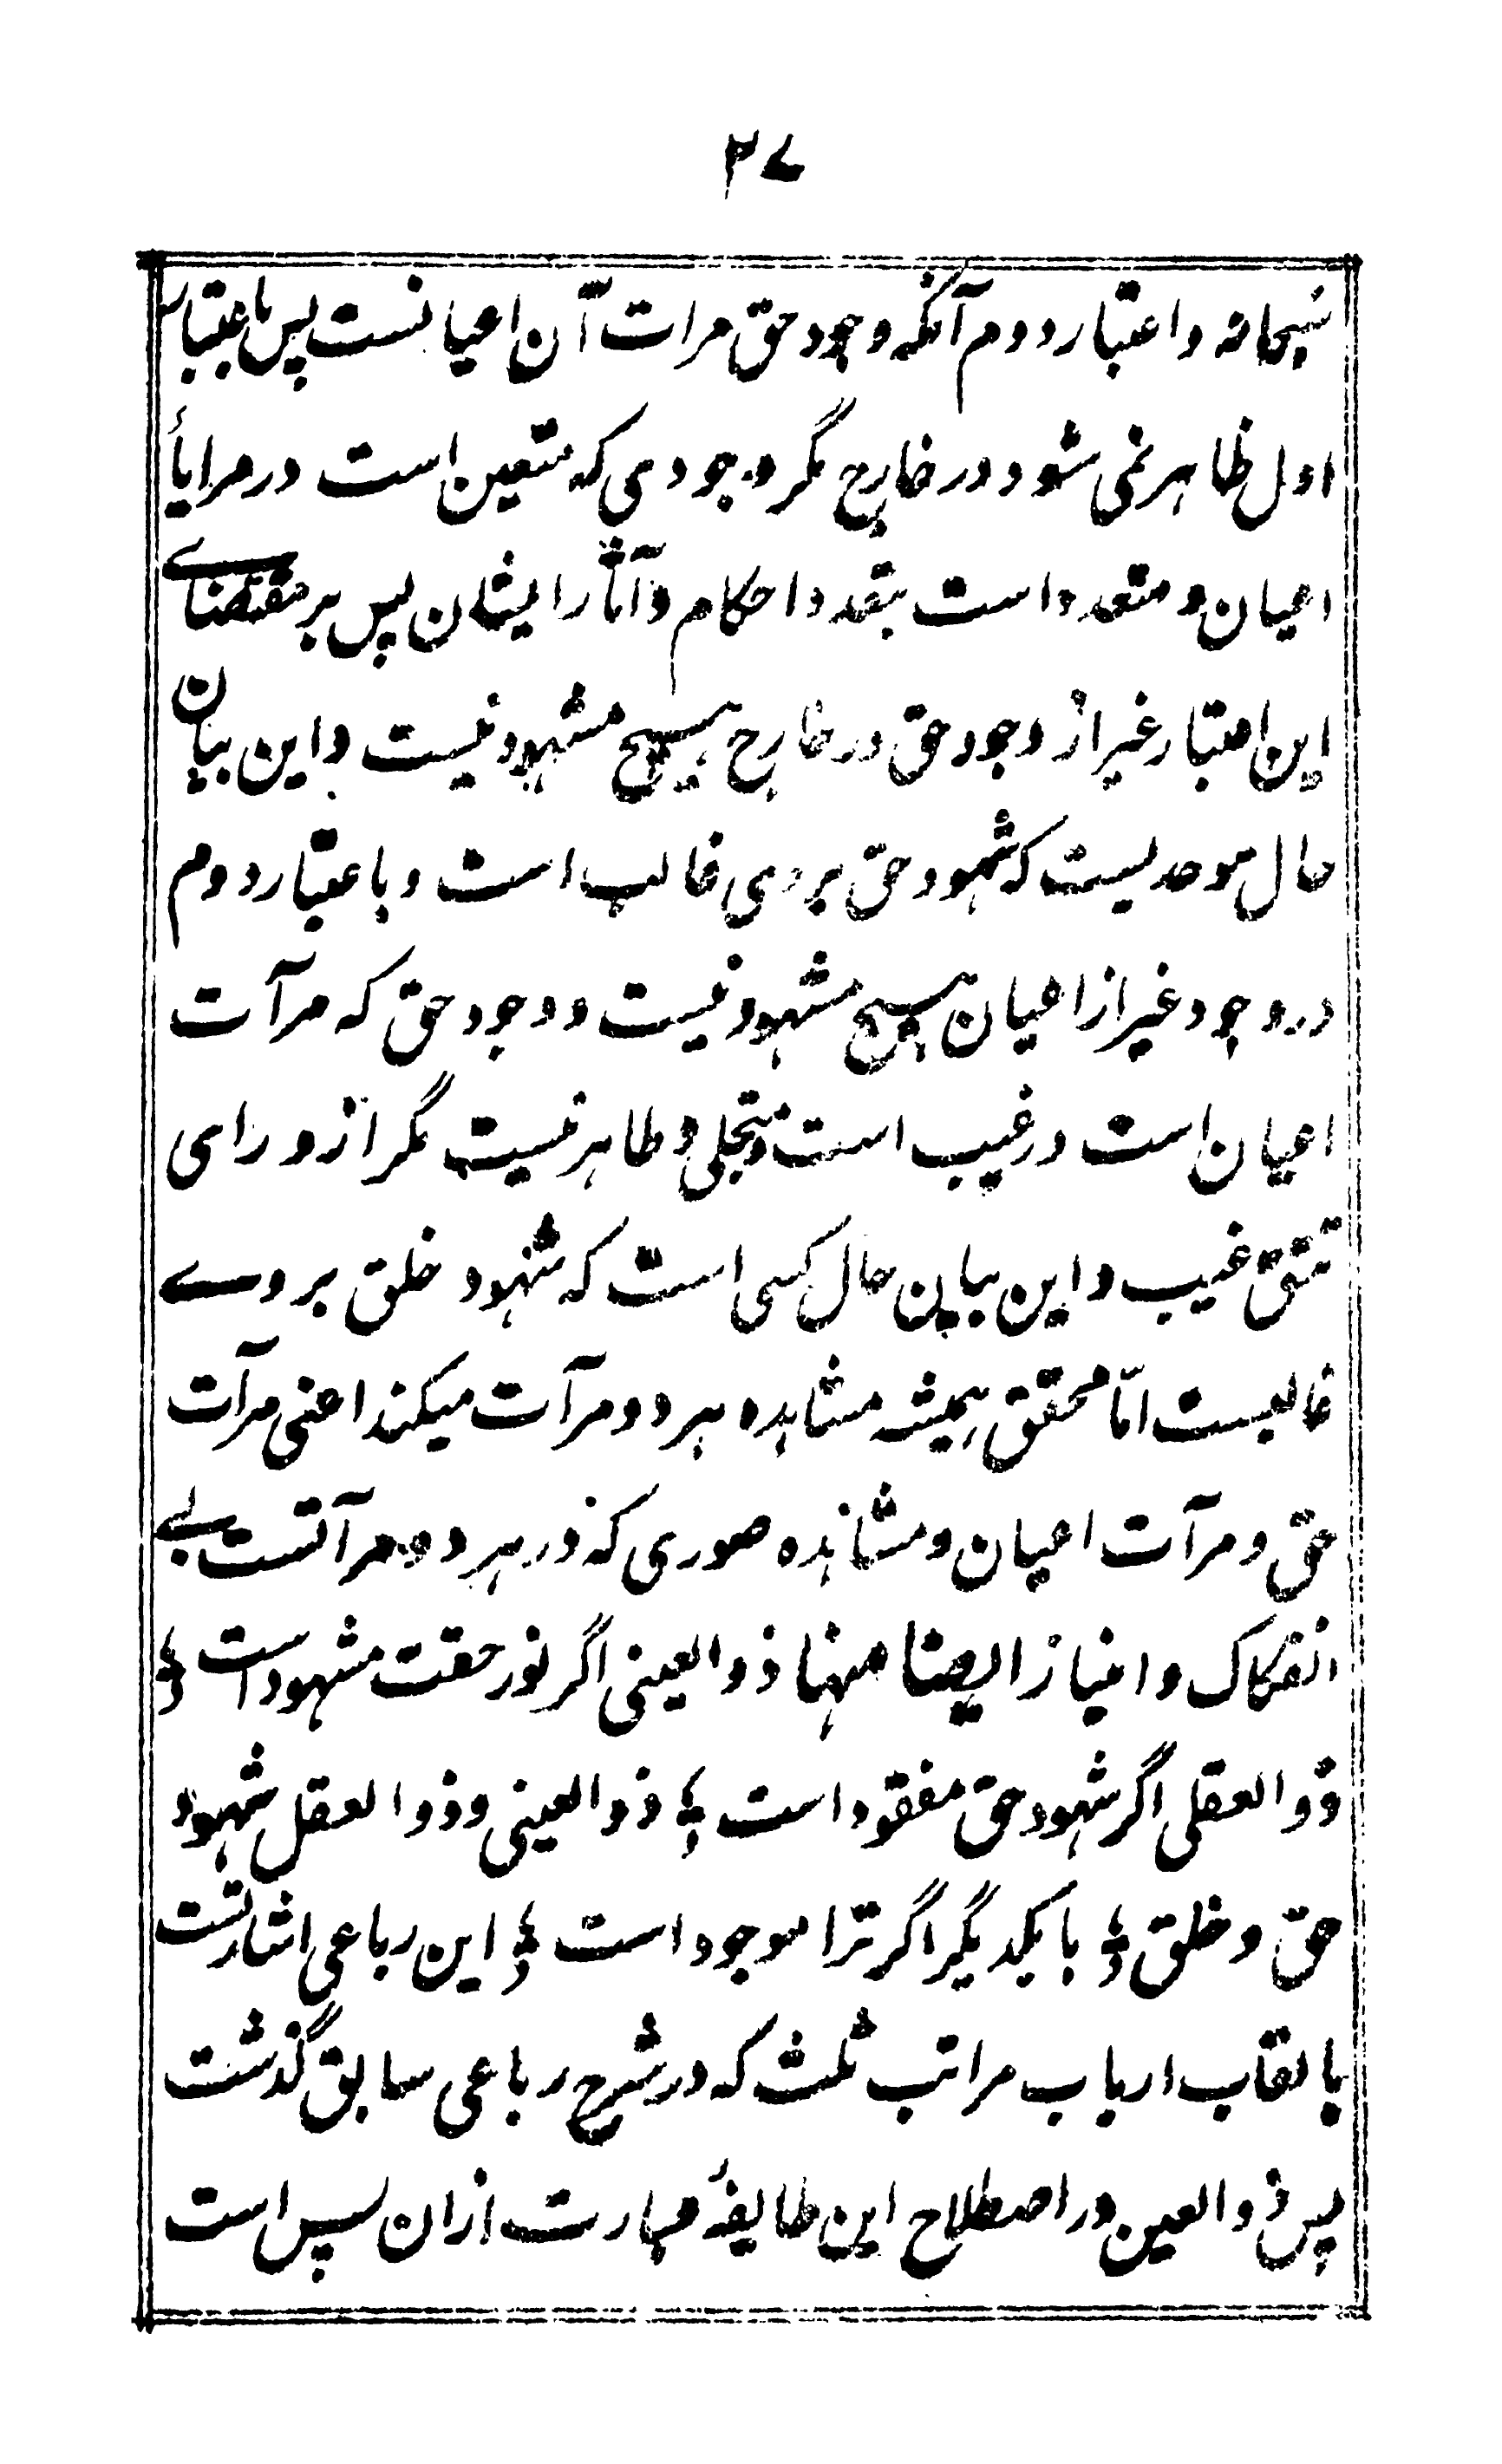 ۲۷
سبحانه و اعتبار دوم آنکه وجود حق مرات آن اعیانست پس باعتبار
اول ظاهر نمی شود در خارج مگر وجودی که متعین است در مرایأ
اعیان و متعدد است بتعدد احکام و آثار ایشان پس بر مقتضاے
این اعتبار غیر از وجود حق در خارج هیچ مشهود نیست و این بیان
حال موحدیست که شهود حق بر وی غالب است و باعتبار دوم
در وجود غیر از اعیان هیچ مشهود نیست و وجود حق که مرآت
اعیان است در غیب است و متجلی و ظاهر نیست مگر از ورای
تتق غیب و این بیان حال کسی است که شهود خلق بر وے
غالبست امّا محقق همیشه مشاهده هر دو مرآت میکند اعنی مرآت
حق و مرآت اعیان و مشاهده صوری که در هر دو مرآتست بے
انفکاک و امتیاز ایضا منها ذو العینی اگر نور حقت مشهود است ؛
ذو العقلی اگر شهود حق مفقود است ؛ ذو العینی و ذو العقل شهود
حق و خلق ؛ با یکدیگر اگر ترا موجود است ؛ این رباعی اشارتست
بالقاب ارباب مراتب ثلث که در شرح رباعی سابق گذشت
پس ذو العین در اصطلاح این طایفهٔ عبارت ازان کس است